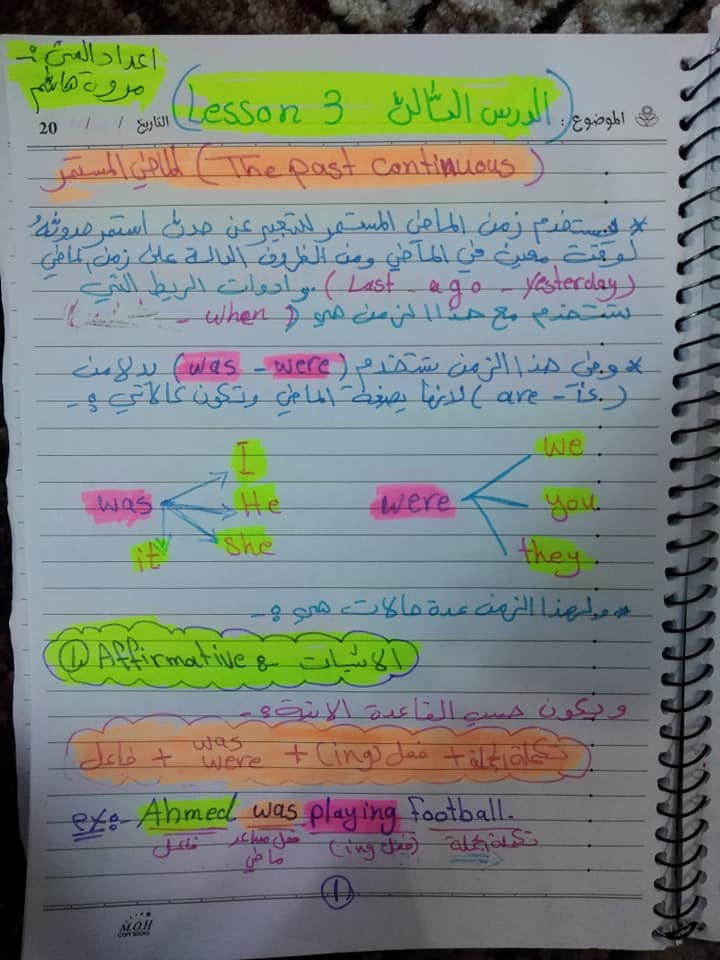 اعداد الست :-
مروة هاشم
الموضوع : الدرس الثالث (Lesson 3) التاريخ / / 20
الماضي المستمر (The past continuous)
* يستخدم زمن الماضي المستمر للتعبير عن حدث استمر حدوثه
لوقت معين في الماضي ومن الظروف الدالة على زمن الماضي
(Last - ago - yesterday) وادوات الربط التي
تستخدم مع هذا الزمن هو (when -
* وفي هذا الزمن تستخدم (was - were) بدلا من
(are - is) لانها بصيغة الماضي وتكون كالآتي :-
was I He she it
were we you they
* ولهذا الزمن عدة حالات هو :-
① Affirmative :- الاثبات
ويكون حسب القاعدة الاتية :-
فاعل + was were + فعل (ing) + تكملة الجملة
ex:- Ahmed was playing football.
فاعل فعل مساعد ماضي (فعل ing) تكملة الجملة
①
M.O.H
COPY BOOKS